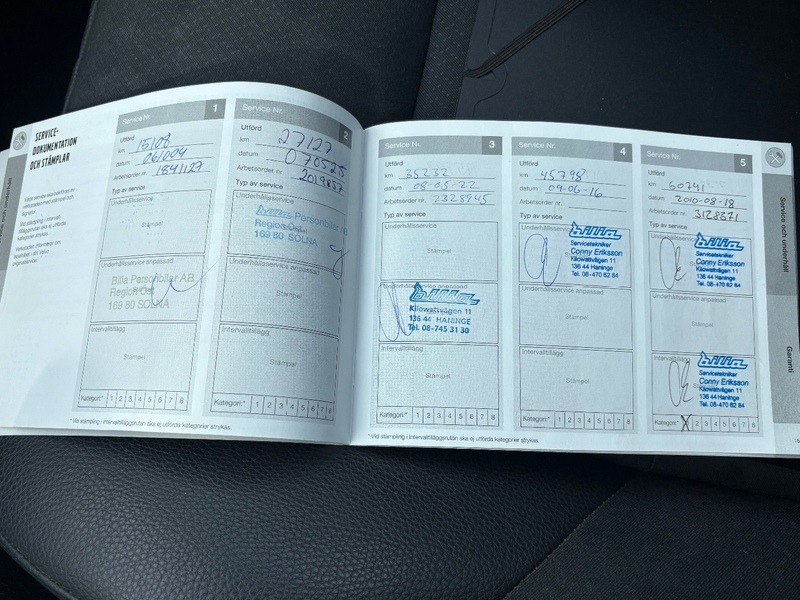 SERVICE-
DOKUMENTATION
OCH STÄMPLAR
Service Nr. 1
Utförd
km 15168
datum 061004
Arbetsorder nr. 1841127
Typ av service
Underhållsservice
Stämpel
Underhållsservice anpassad
Billia Personbilar AB
Region Öst
169 80 SOLNA
Intervalltillägg
Stämpel
Kategori:* 1 2 3 4 5 6 7 8
* Vid stämpling i Intervalltilläggsrutan ska ej utförda kategorier strykas.
Service Nr. 2
Utförd
km 27127
datum 070525
Arbetsorder nr. 2019857
Typ av service
Underhållsservice
Bilia Personbilar AB
Region Öst
169 80 SOLNA
Underhållsservice anpassad
Stämpel
Intervalltillägg
Stämpel
Kategori:* 1 2 3 4 5 6 7 8
Service Nr. 3
Utförd
km 35232
datum 08-05-22
Arbetsorder nr. 2328945
Typ av service
Underhållsservice
Stämpel
Underhållsservice anpassad
bilia
Kilowattvägen 11
136 44 HANINGE
Tel. 08-745 31 30
Intervalltillägg
Stämpel
Kategori:* 1 2 3 4 5 6 7 8
* Vid stämpling i Intervalltilläggsrutan ska ej utförda kategorier strykas.
Service Nr. 4
Utförd
km 45798
datum 09-06-16
Arbetsorder nr.
Typ av service
Underhållsservice
bilia
Servicetekniker
Conny Eriksson
Kilowattvägen 11
136 44 Haninge
Tel. 08-470 62 84
Underhållsservice anpassad
Stämpel
Intervalltillägg
Stämpel
Kategori:* 1 2 3 4 5 6 7 8
Service Nr. 5
Utförd
km 60741
datum 2010-08-18
Arbetsorder nr. 3128371
Typ av service
Underhållsservice
bilia
Servicetekniker
Conny Eriksson
Kilowattvägen 11
136 44 Haninge
Tel. 08-470 62 84
Underhållsservice anpassad
Stämpel
Intervalltillägg
bilia
Servicetekniker
Conny Eriksson
Kilowattvägen 11
136 44 Haninge
Tel. 08-470 62 84
Kategori:* 2 3 4 5 6 7 8
Service och underhåll
Garanti